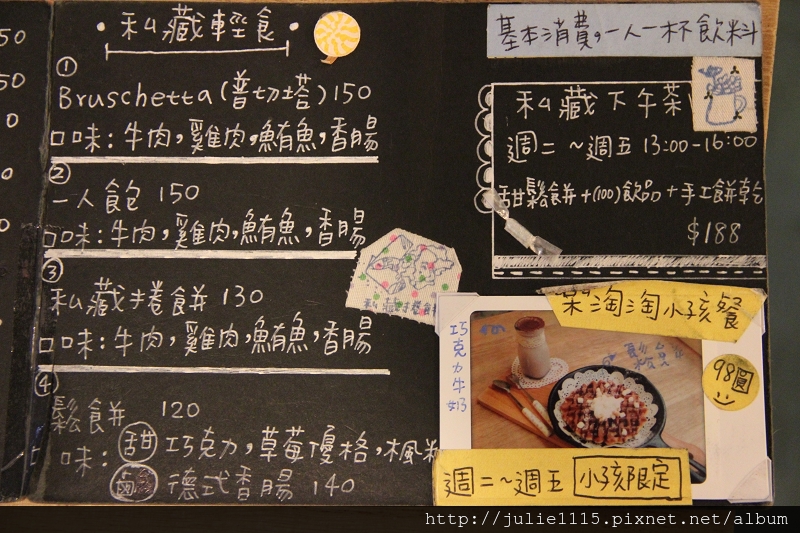 50
50
私藏輕食
① Bruschetta(普切塔)150
口味:牛肉,雞肉,鮪魚,香腸
② 一人飽 150
口味:牛肉,雞肉,鮪魚,香腸
③ 私藏捲餅 130
口味:牛肉,雞肉,鮪魚,香腸
④ 鬆餅 120
口味:甜 巧克力,草莓優格,楓糖
鹹 德式香腸 140
私藏捲餅
基本消費,一人一杯飲料
私藏下午茶
週二~週五 13:00-16:00
甜鬆餅+(100)飲品+手工餅乾
$188
呆淘淘小孩餐
98圓
巧克力牛奶
鬆餅
週二~週五 小孩限定
http://julie1115.pixnet.net/album